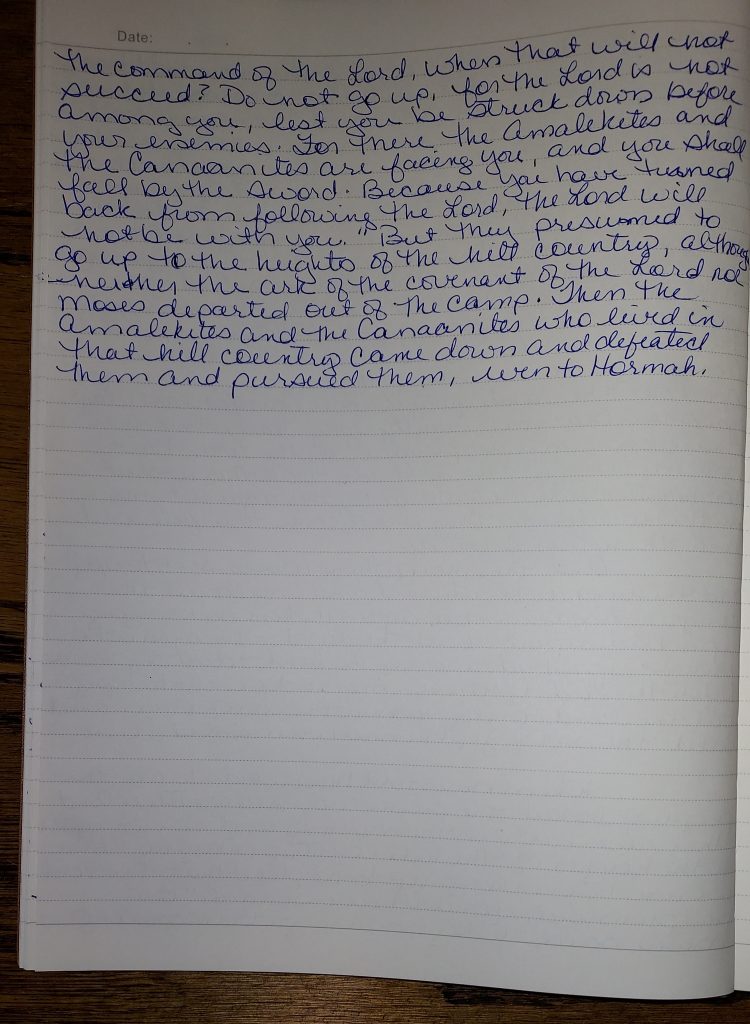 Date:
the command of the Lord, when that will not
succeed? Do not go up, for the Lord is not
among you, lest you be struck down before
your enemies. For there the Amalekites and
the Canaanites are facing you, and you shall
fall by the sword. Because you have turned
back from following the Lord, the Lord will
not be with you." But they presumed to
go up to the heights of the hill country, although
neither the ark of the covenant of the Lord nor
Moses departed out of the camp. Then the
Amalekites and the Canaanites who lived in
that hill country came down and defeated
them and pursued them, even to Hormah.